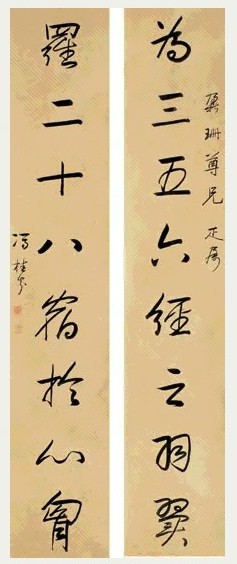 為三五六經之羽翼
珊尊兄正屬
羅二十八宿於心胷
馮桂芬